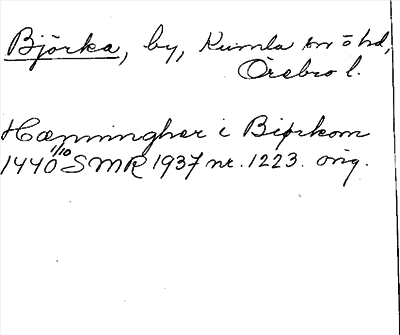 Björka, by, Kumla sn o hd,
Örebro l.
Hæmmingher i Biørkom
1440 1/10 SMR 1937 nr. 1223. orig.